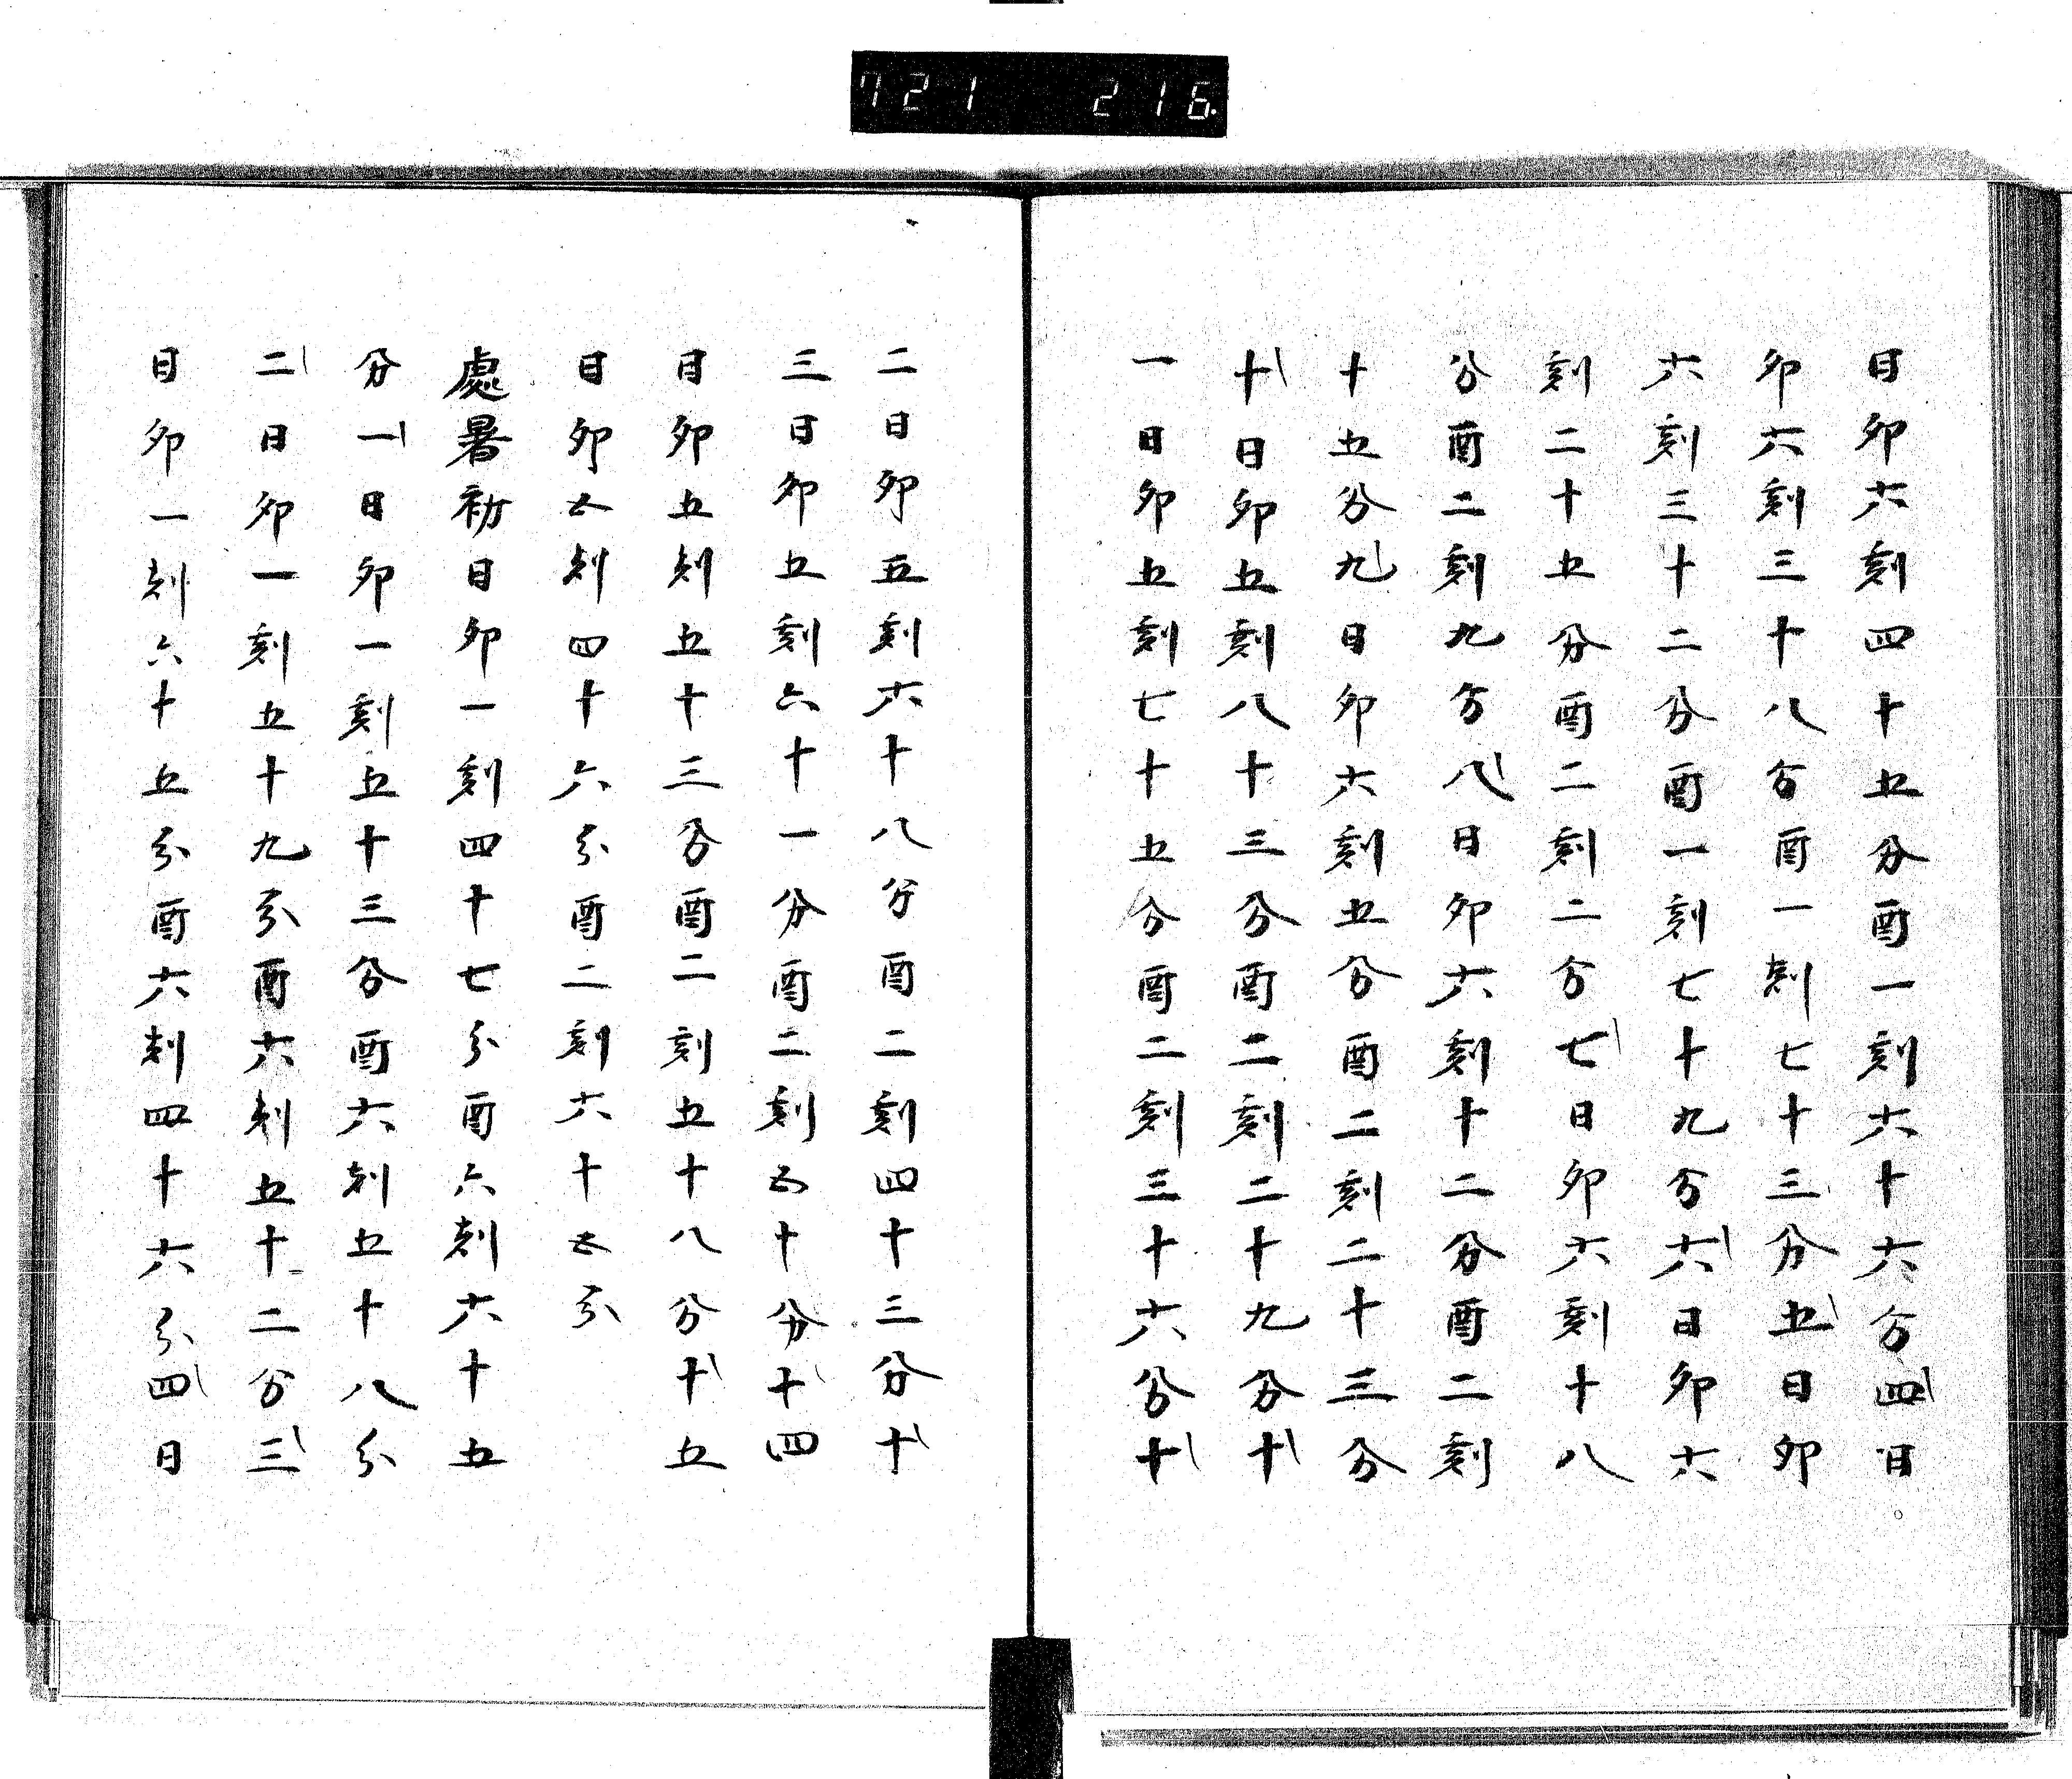 721 216
日卯六刻四十五分酉一刻六十六分四日
卯六刻三十八分酉一刻七十三分五日卯
六刻三十二分酉一刻七十九分六日卯六
刻二十五分酉二刻二分七日卯六刻十八
分酉二刻九分八日卯六刻十二分酉二刻
十五分九日卯六刻五分酉二刻二十三分
十日卯五刻八十三分酉二刻二十九分十
一日卯五刻七十五分酉二刻三十六分十
二日卯五刻六十八分酉二刻四十三分十
三日卯五刻六十一分酉二刻五十分十四
日卯五刻五十三分酉二刻五十八分十五
日卯五刻四十六分酉二刻六十五分
處暑初日卯一刻四十七分酉六刻六十五
分一日卯一刻五十三分酉六刻五十八分
二日卯一刻五十九分酉六刻五十二分三
日卯一刻六十五分酉六刻四十六分四日